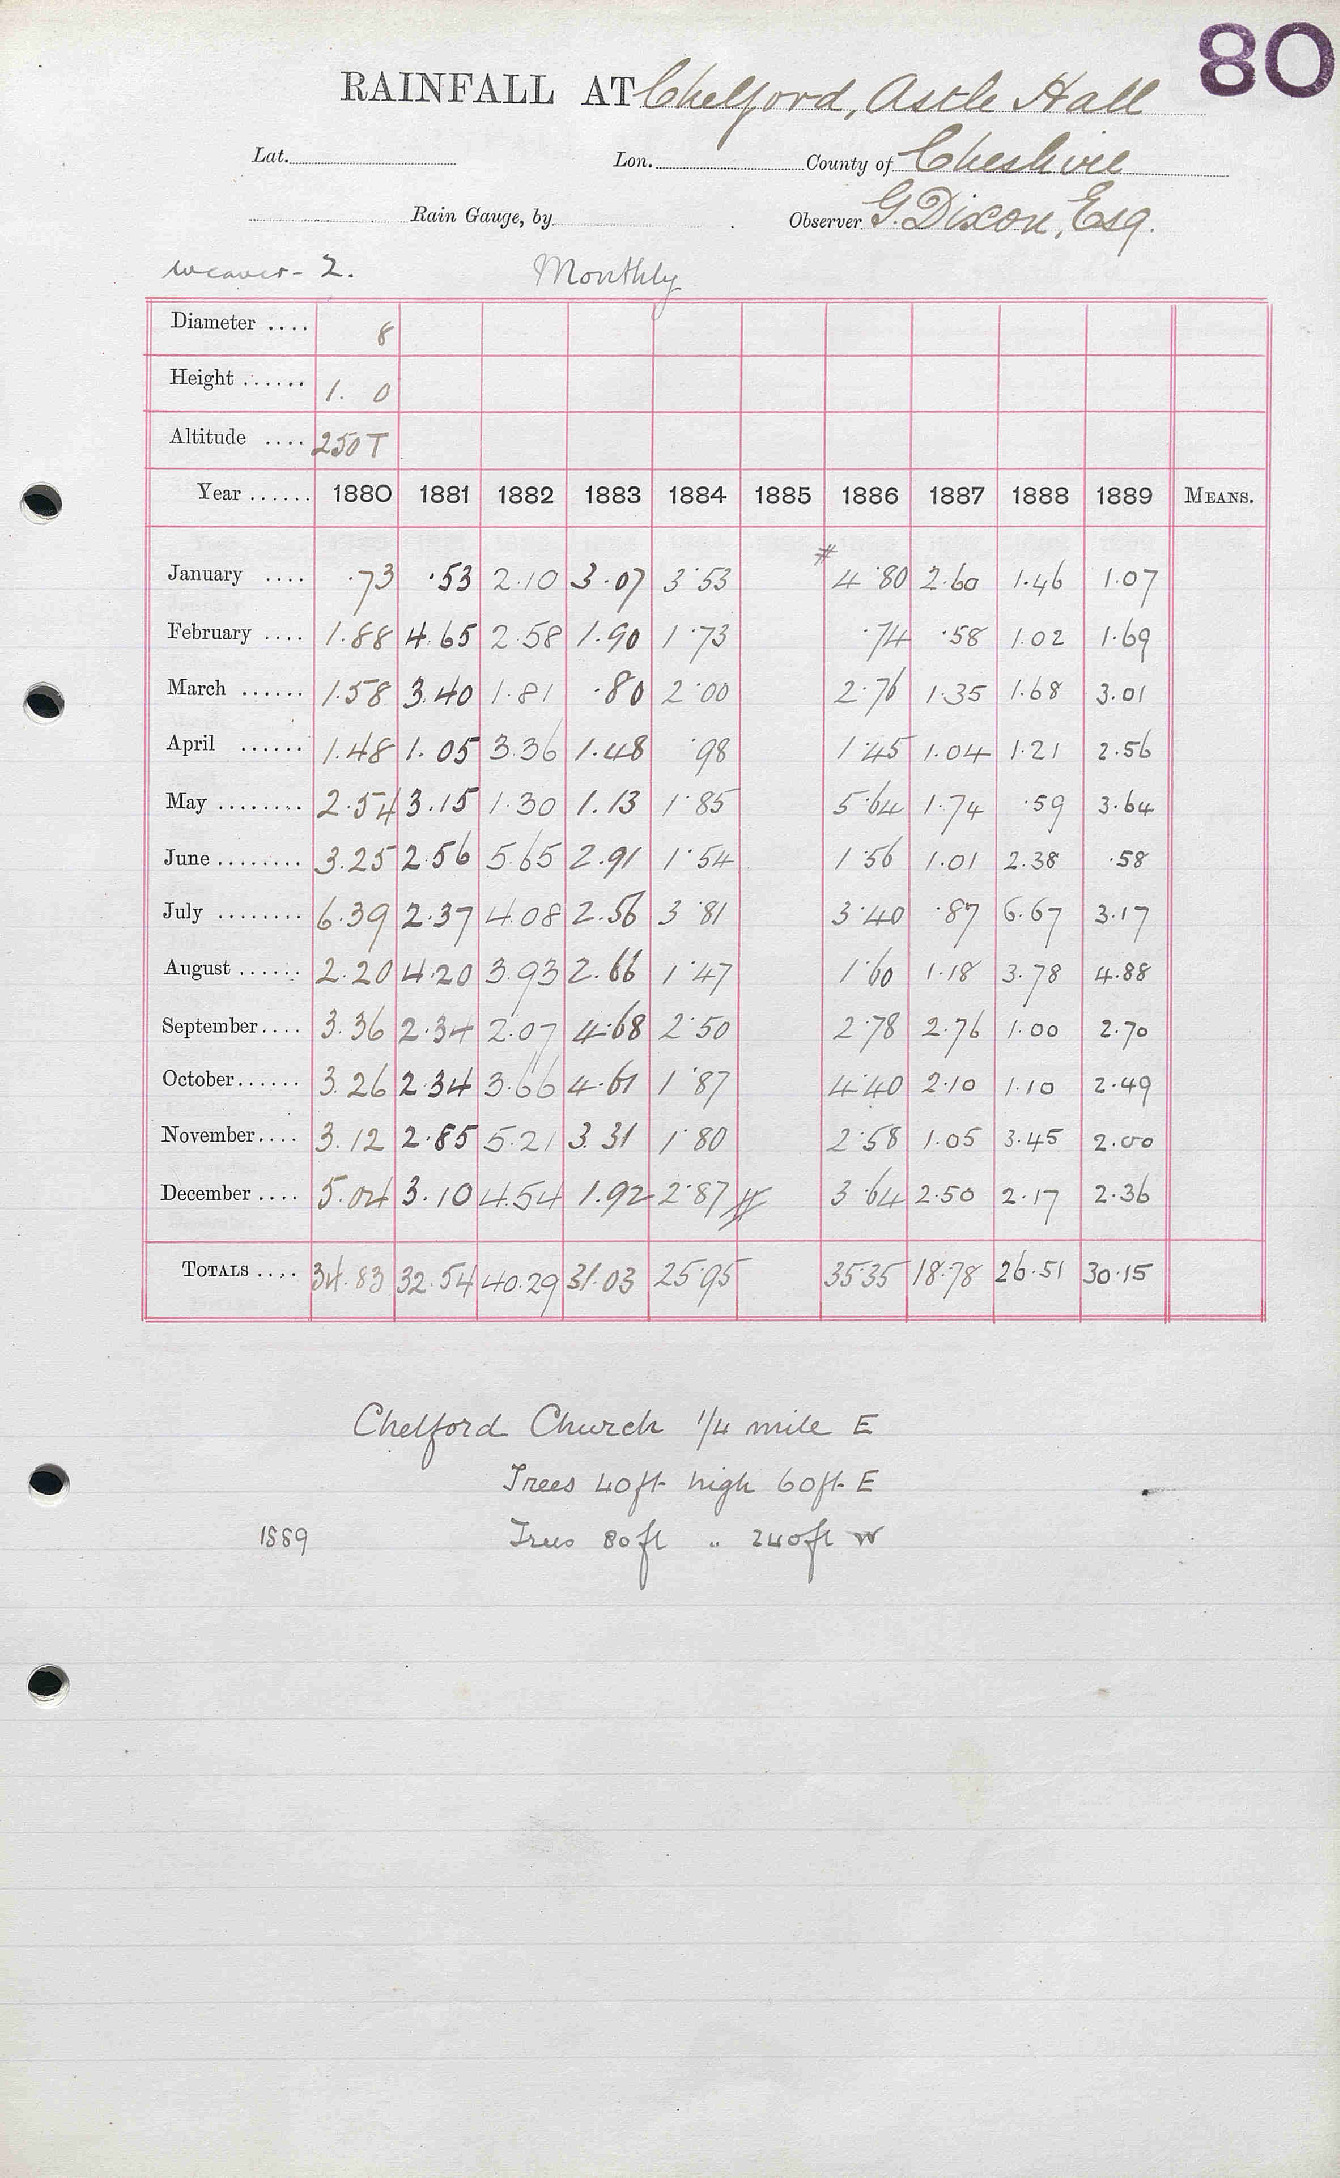 80
RAINFALL AT Chelford, Astle Hall
Lat. Lon. County of Cheshire
Rain Gauge, by Observer G. Dixon, Esq.
Weaver - 2. Monthly
Diameter .... 8
Height ...... 1. 0
Altitude .... 250 T
Year ...... 1880 1881 1882 1883 1884 1885 1886 1887 1888 1889 MEANS.
January .... .73 .53 2.10 3.07 3.53 # 4.80 2.60 1.46 1.07
February .... 1.88 4.65 2.58 1.90 1.73 .74 .58 1.02 1.69
March ...... 1.58 3.40 1.81 .80 2.00 2.76 1.35 1.68 3.01
April ...... 1.48 1.05 3.36 1.48 .98 1.45 1.04 1.21 2.56
May ........ 2.54 3.15 1.30 1.13 1.85 5.64 1.74 .59 3.64
June ........ 3.25 2.56 5.65 2.91 1.54 1.56 1.01 2.38 .58
July ........ 6.39 2.37 4.08 2.56 3.81 3.40 .87 6.67 3.17
August ...... 2.20 4.20 3.93 2.66 1.47 1.60 1.18 3.78 4.88
September.... 3.36 2.34 2.07 4.68 2.50 2.78 2.76 1.00 2.70
October...... 3.26 2.34 3.66 4.61 1.87 4.40 2.10 1.10 2.49
November.... 3.12 2.85 5.21 3.31 1.80 2.58 1.05 3.45 2.00
December .... 5.04 3.10 4.54 1.92 2.87 # 3.64 2.50 2.17 2.36
TOTALS .... 34.83 32.54 40.29 31.03 25.95 35.35 18.78 26.51 30.15
Chelford Church 1/4 mile E
Trees 40ft high 60ft. E
1889 Trees 80ft " 240ft W